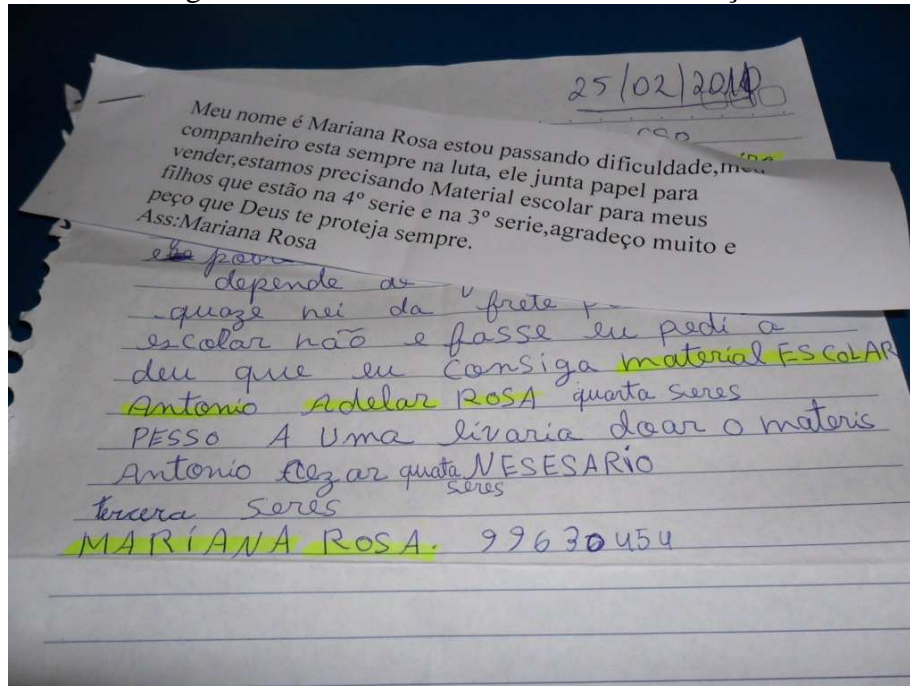 25/02/2010
Meu nome é Mariana Rosa estou passando dificuldade,meu
companheiro esta sempre na luta, ele junta papel para
vender,estamos precisando Material escolar para meus
filhos que estão na 4º serie e na 3º serie,agradeço muito e
peço que Deus te proteja sempre.
Ass:Mariana Rosa
depende
quaze nei da frete
escolar não e fasse eu pedi a
deu que eu consiga material ESCOLAR
Antonio Adelar ROSA quarta seres
PESSO A Uma livaria doar o materis
Antonio cezar quata NESESARIO
seres
tercera seres
MARIANA ROSA. 99630454